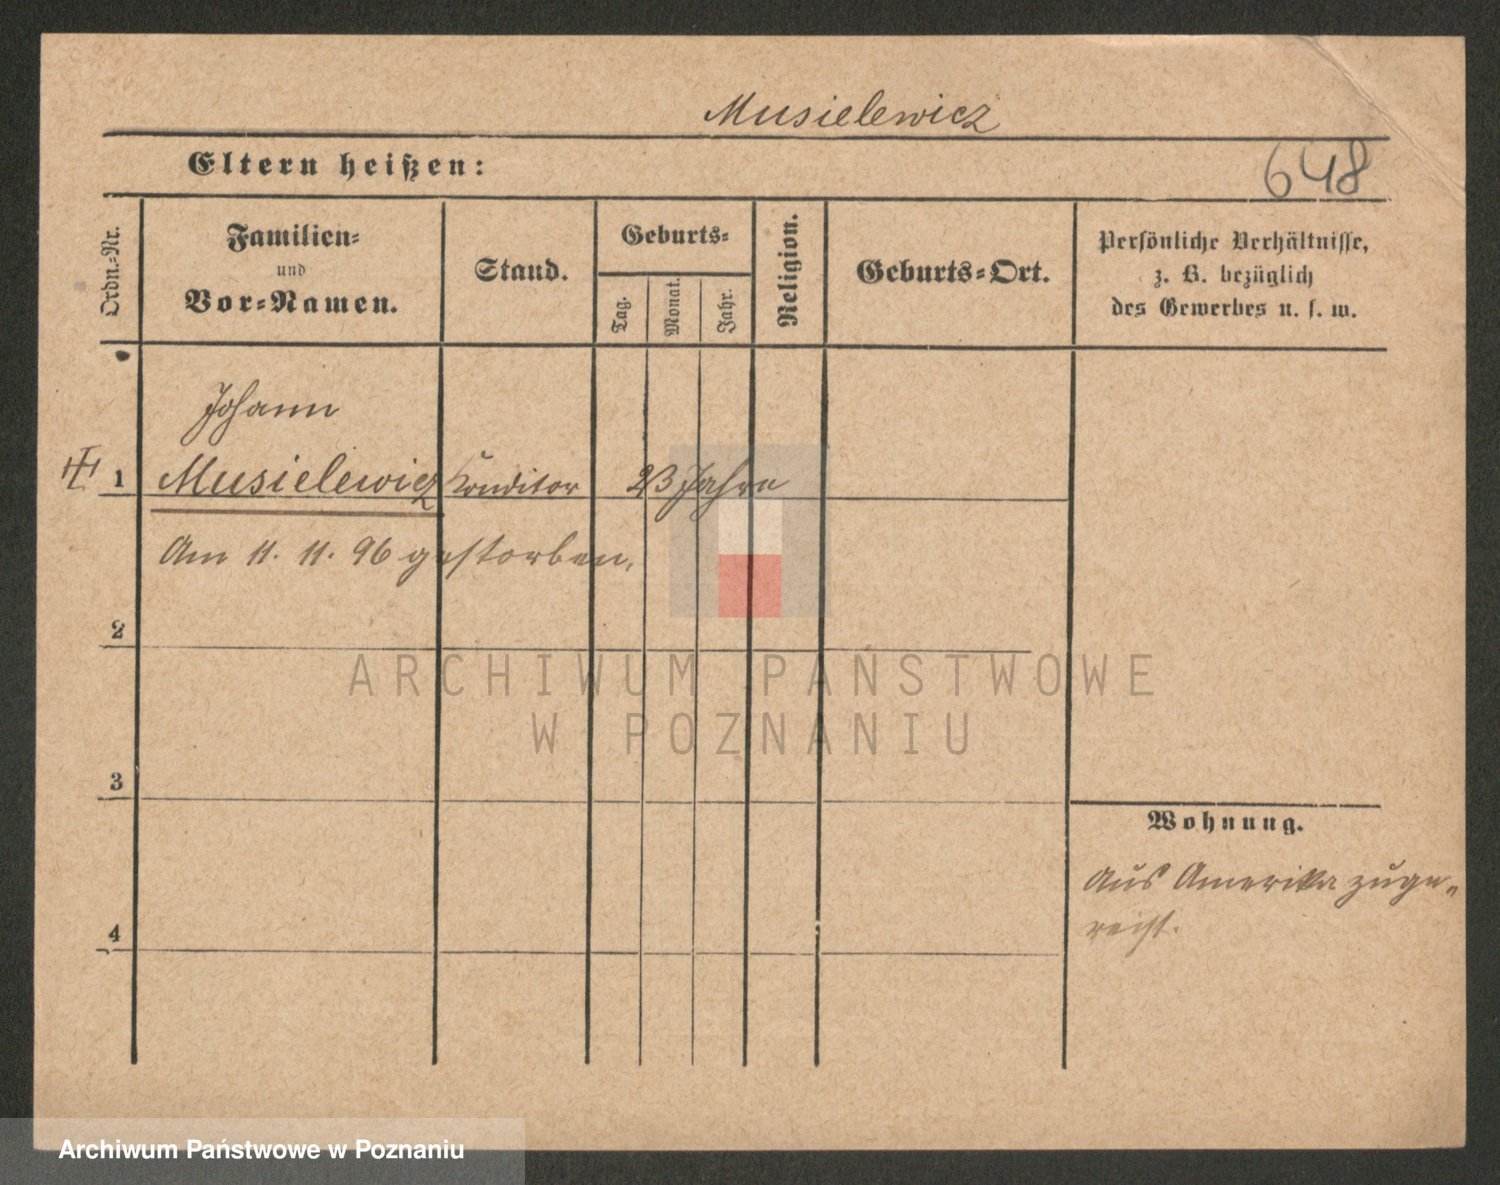 Musielewicz
Eltern heißen:
648
Ordn.-Nr.
Familien-
und
Vor-Namen.
Stand.
Geburts-
Tag.
Monat.
Jahr.
Religion.
Geburts-Ort.
Persönliche Verhältnisse,
z. B. bezüglich
des Gewerbes u. s. w.
Johann
1 Musielewicz Konditor 23 Jahre
Am 11. 11. 96 gestorben.
2
ARCHIWUM PAŃSTWOWE
W POZNANIU
3
Wohnung.
Aus Amerika zuge-
reist.
4
Archiwum Państwowe w Poznaniu